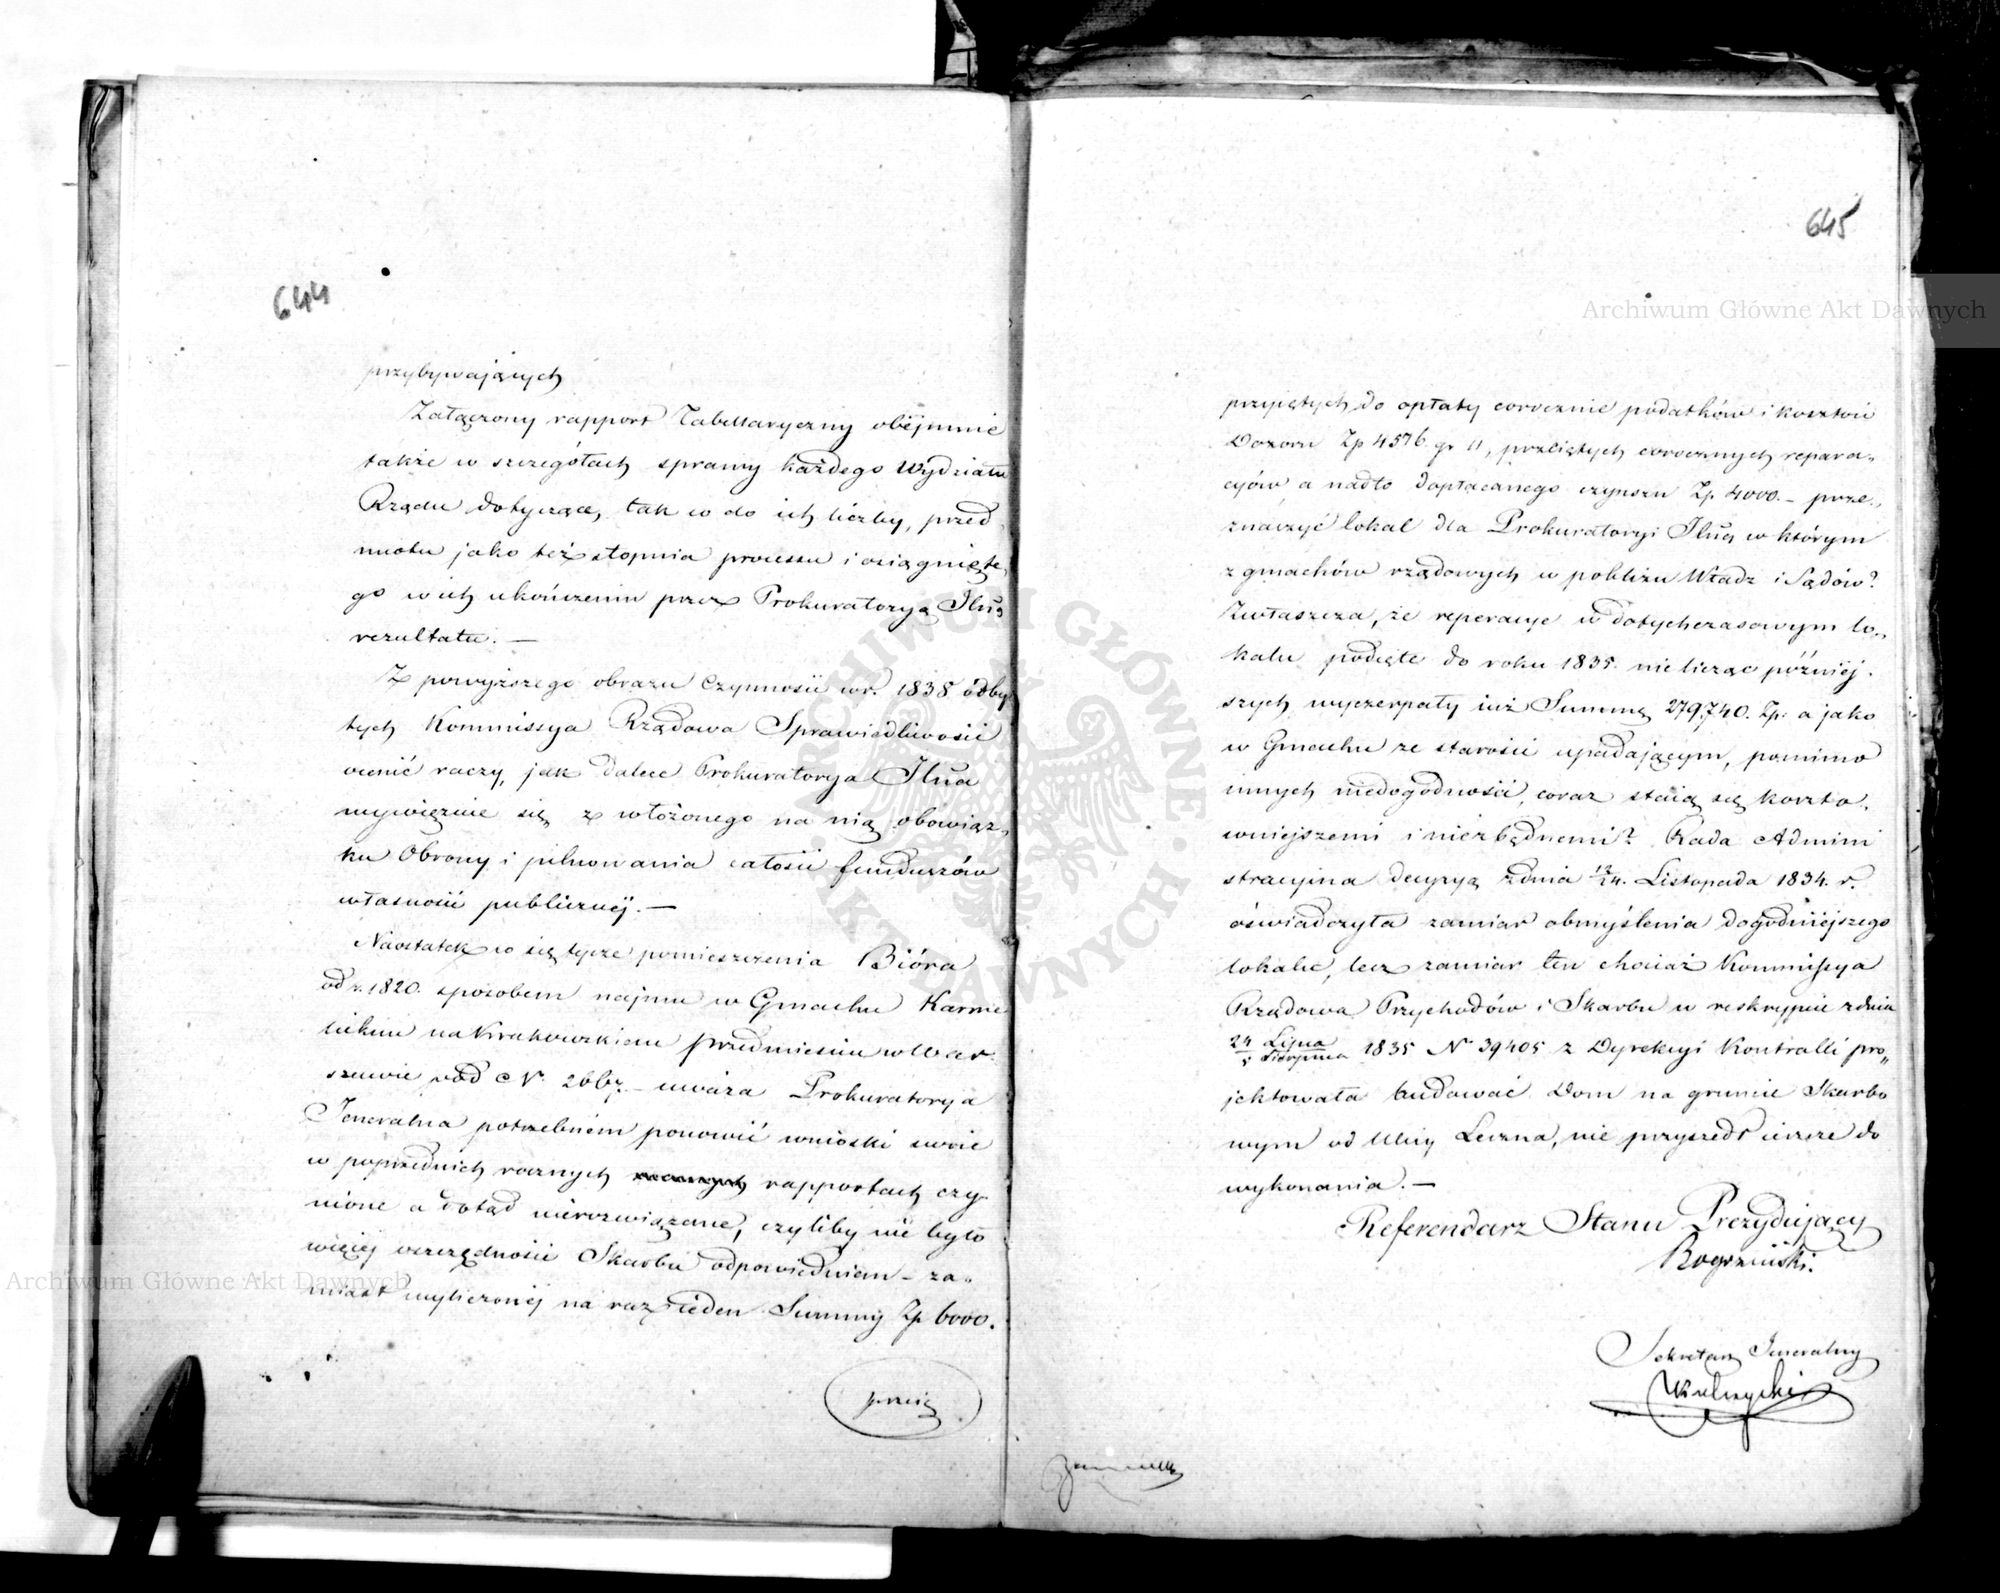 644
przybywających
Załączony rapport Tabellaryczny obejmuie
także w szczegółach sprawy każdego Wydziału
Rządu dotyczące, tak co do ich liczby, przed
miotu jako też stopnia processu i osiągnięte
go w ich ukończeniu przez Prokuratoryą Jlną
rezultatu. —
Z powyższego obrazu Czynności w r. 1838 odby
tych Kommissya Rządowa Sprawiedliwości
ocenić raczy, jak dalece Prokuratorya Jlna
wywięzuie się z włożonego na nią obowiąz„
ku Obrony i pilnowania całości funduszów
własności publicznéj. —
Naostatek co się tycze pomieszczenia Bióra
od r. 1820. sposobem najmu w Gmachu Karme
lickim na Krakowskiem przedmieściu w War
szawie pod N. 2667. — uważa Prokuratorya
Jeneralna potrzebnem ponowić wnioski swoie
w poprzednich rocznych rapportach czy
nione a dotąd nierozwiązane, czyliby nie było
więcej oszczędności Skarbu odpowiedniem — za„
miast wyliczonej na raz ieden Summy Zp 6000.
przię
645
przyiętych do opłaty corocznie podatków i kosztów
Dozoru Zp 4576. gr 11, przeciętych corocznych repara„
cyów a nadto dopłacanego czynszu Zp. 4000. — prze„
znaczyć lokal dla Prokuratoryi Jlney w którym
z gmachów rządowych w pobliżu Władz i Sądów?
Zwłaszcza, że reperacye w dotychczasowym lo„
kalu podięte do roku 1835. nie licząc późniéj
szych wyczerpały iuż Summę 279,740. Zp: a jako
w Gmachu ze starości upadającym, pomimo
innych niedogodności, coraz staią się koszto„
wniejszemi i niezbędnemi? Rada Admini
stracyjna decyzyą z dnia 12/24. Listopada 1834. r.
oświadczyła zamiar obmyślenia dogodniejszego
lokalu, lecz zamiar ten chociaż Kommissya
Rządowa Przychodów i Skarbu w reskrypcie z dnia
24 Lipca / 5 Sierpnia 1835 N 39405 z Dyrekcyi Kontrolli pro„
jektowała budować Dom na gruncie Skarbo
wym od Ulicy Leszna, nie przyszedł ieszcze do
wykonania. —
Referendarz Stanu Prezydujący
Sekretarz Jeneralny
Archiwum Główne Akt Dawnych
Archiwum Główne Akt Dawnych
ARCHIWUM GŁÓWNE AKT DAWNYCH